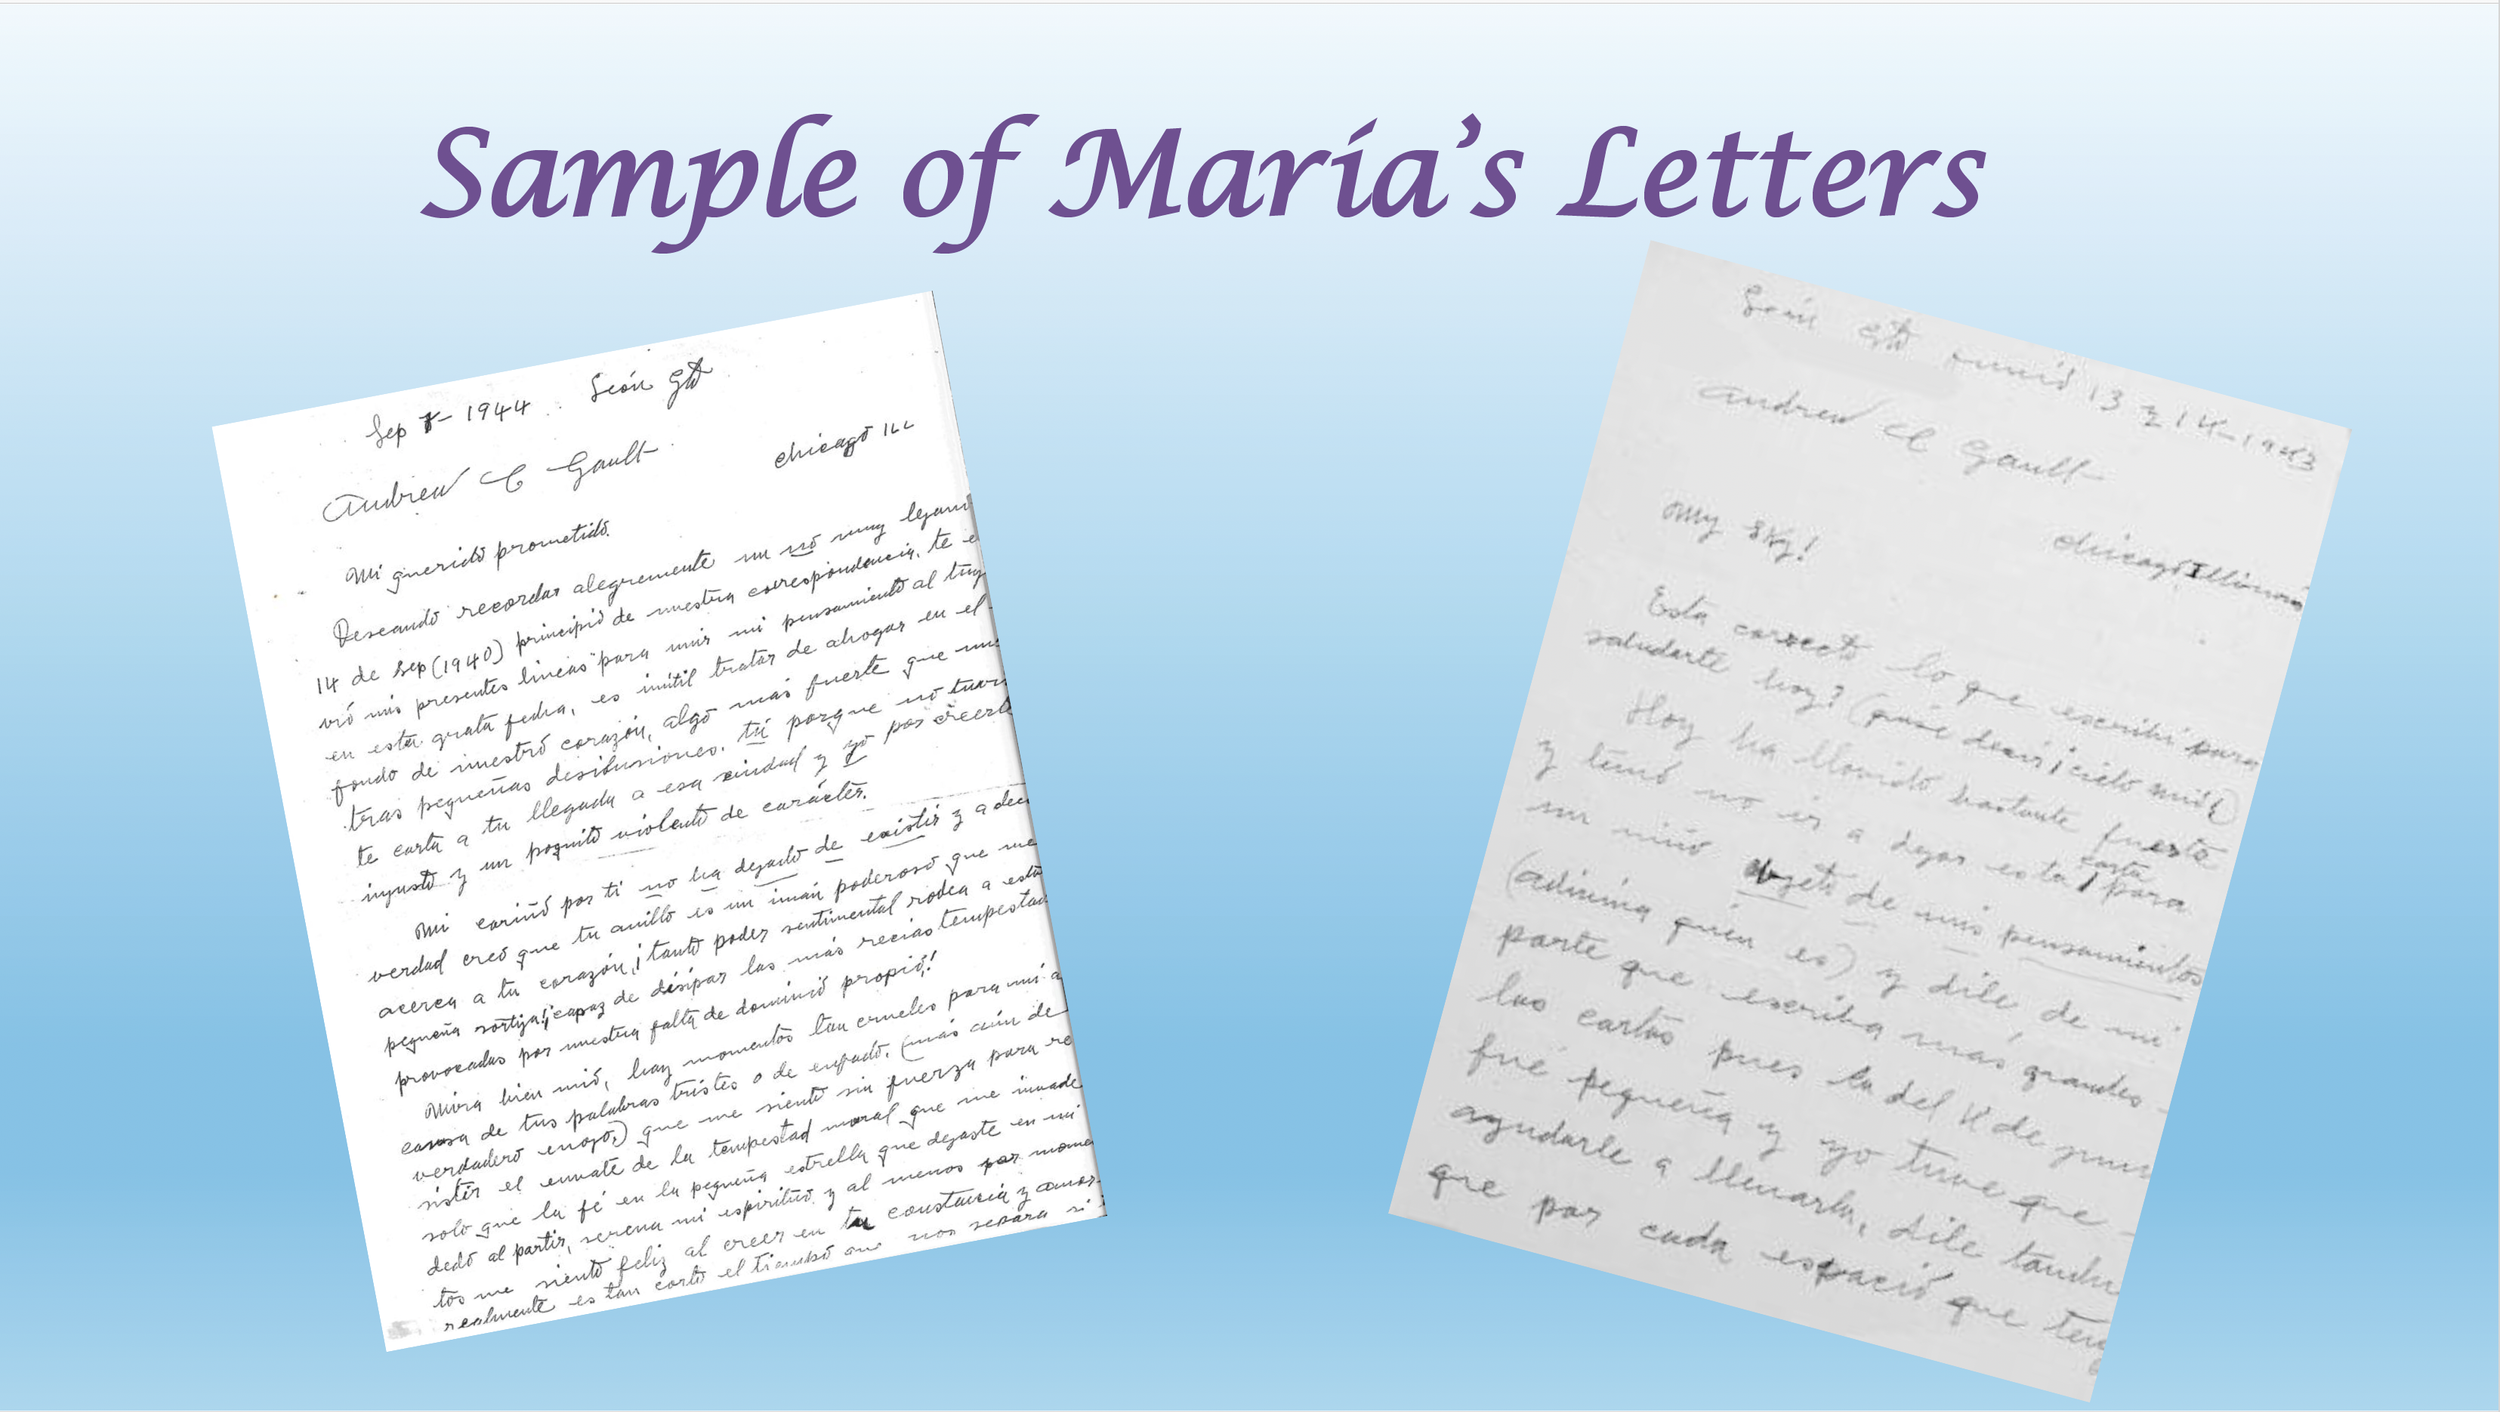 Sample of María's Letters
Sep 7- 1944 León Gto
Andrew C Gault chicago ILL
Mi querido prometido.
Deseando recordar alegremente un no muy lejano
14 de Sep (1940) principio de nuestra correspondencia, te e
vió mis presentes lineas para unir mi pensamiento al tuyo
en esta grata fecha, es inútil tratar de ahogar en el
fondo de nuestro corazón, algo mas fuerte que nues
tras pequeñas desilusiones. tú porque no tuvis
te carta a tu llegada a esa ciudad y yo por creerte
injusto y un poquito violento de carácter.
Mi cariño por ti no ha dejado de existir y a decir
verdad creo que tu anillo es un imán poderoso que me
acerca a tu corazón, ¡tanto poder sentimental rodea a esta
pequeña sortija! ¡capaz de disipar las más recias tempestad
provocadas por nuestra falta de dominio propio!
Mira bien mió, hay momentos tan crueles para mi a
causa de tus palabras tristes o de enfado. (más aún de
verdadero enojo.) que me siento sin fuerza para re
sistir el envate de la tempestad moral que me invade
solo que la fé en la pequeña estrella que dejaste en mi
dedo al partir, serena mi espiritu y al menos por momen
tos me siento feliz al creer en tu constancia y amor-
realmente es tan corto el tiempo que nos separa si
León Gto junio 13 y 14-1943
Andrew C Gault
My sky! chicago Illinois
Esta correcto lo que escribi para
saludarte hoy? (quise decir ¡cielo mio!)
Hoy ha llovido bastante fuerte
y temo no ir a dejar esta carta para
un niño objeto de mis pensamientos
(adivina quien es) y dile, de mi
parte que escriba mas grandes-
las cartas pues la del 4 de juni
fué pequeña y yo tuve que-
ayudarle a llenarla, dile tambi
que por cada espació que ten